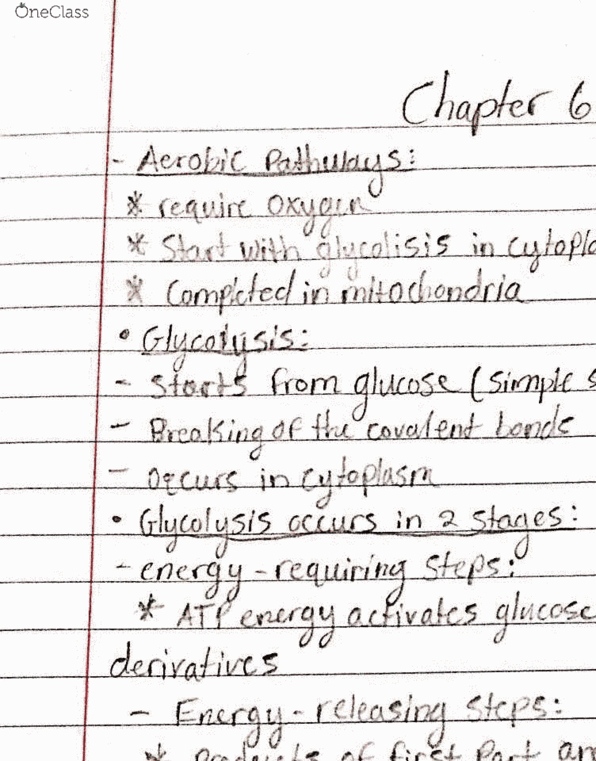 OneClass
Chapter 6
- Aerobic Pathways:
* require oxygen
* Start with glycolisis in cytopla
* Completed in mitochondria
• Glycolysis:
- Starts from glucose (simple s
- Breaking of the covalent bonds
- Occurs in cytoplasm
• Glycolysis occurs in 2 stages:
- energy-requiring steps:
* ATP energy activates glucose
derivatives
- Energy-releasing steps:
* Products of first part an